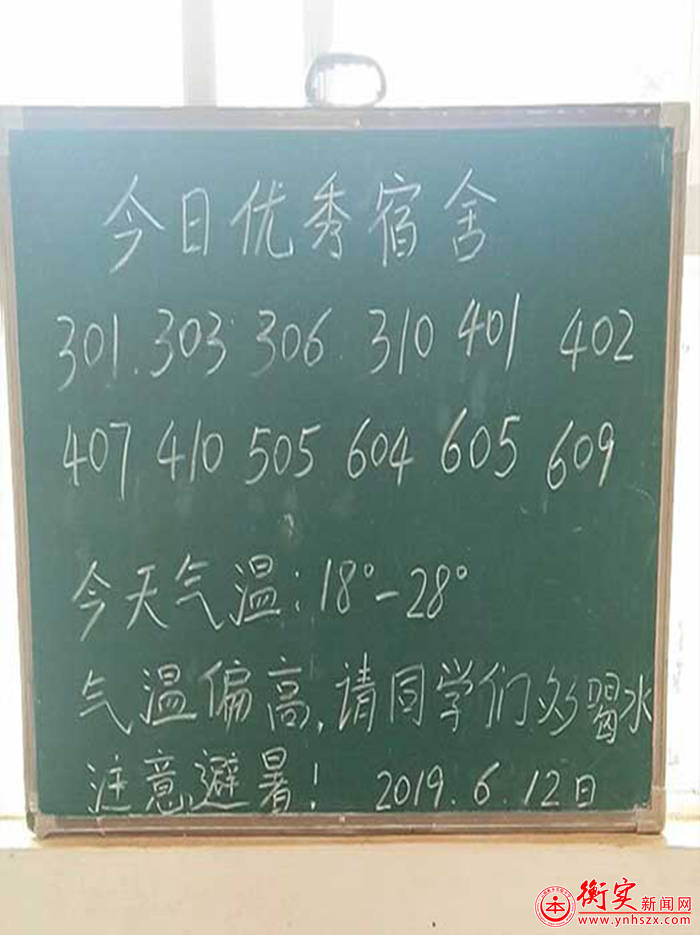 今日优秀宿舍
301.303 306. 310 401 402
407 410 505 604 605 609
今天气温:18°-28°
气温偏高,请同学们多喝水
注意避暑! 2019.6.12日
衡实新闻网
www.ynhszx.com